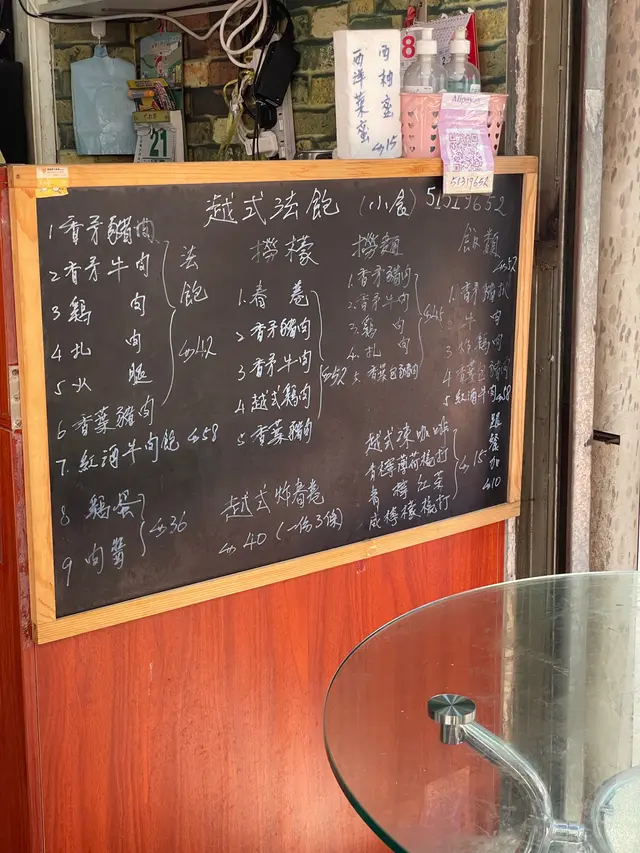 西柚蜜
西洋菜蜜 15
8
21
Alipay
51319652
越式法飽 (小食) 51319652
1 香茅豬肉
2 香茅牛肉
3 鷄 肉
4 扎 肉
5 火 腿
法飽 42
6 香葉豬肉
7. 紅酒牛肉飽 58
8 鷄蛋
9 肉醬
36
撈檬
1. 春卷
2 香茅豬肉
3 香茅牛肉
4 越式鷄肉
5 香葉豬肉
52
越式炸春卷
40 (一份3條)
撈麵
1. 香茅豬肉
2. 香茅牛肉
3. 鷄 肉
4. 扎 肉
5. 香葉包豬肉
45
越式凍咖啡
青檸薄荷梳打
青檸紅茶
咸檸檬梳打
15
飯類
52
1. 香茅豬扒
2 牛肉
3 炸鷄肉
4 香葉包豬肉
5 紅酒牛肉 58
跟餐加
10